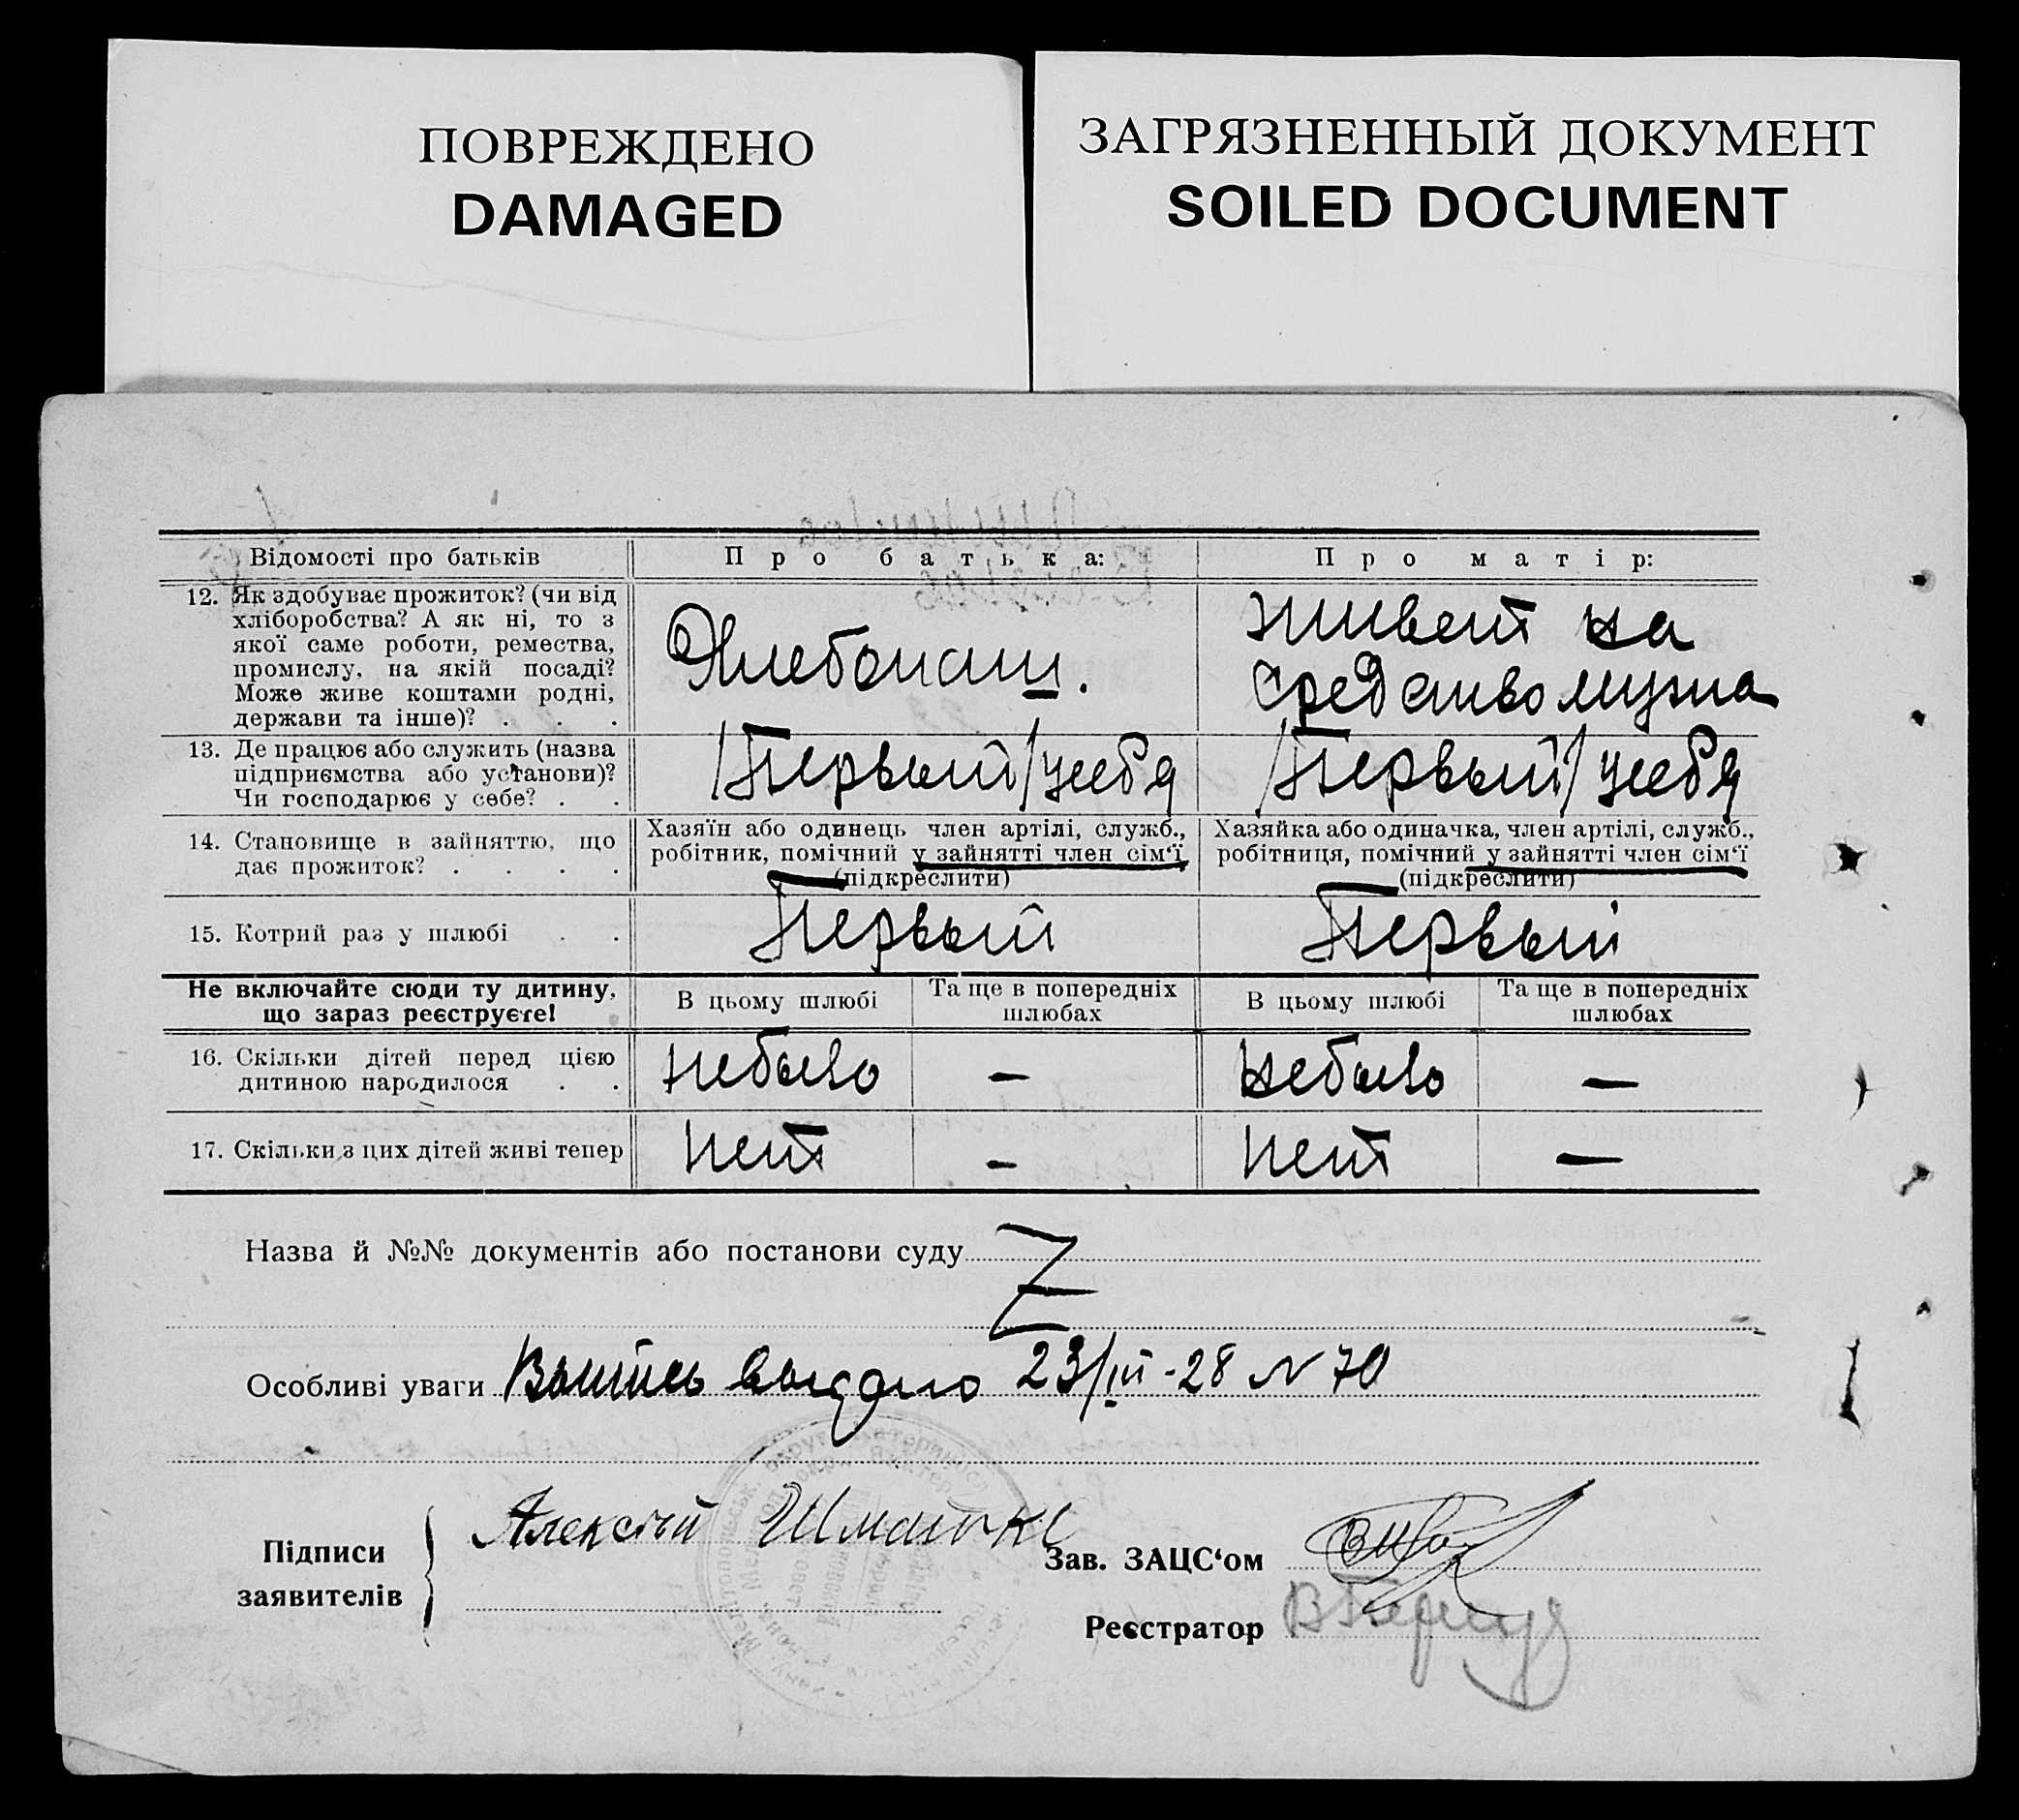 ПОВРЕЖДЕНО
DAMAGED
ЗАГРЯЗНЕННЫЙ ДОКУМЕНТ
SOILED DOCUMENT
Відомості про батьків
Про батька:
Про матір:
12. Як здобуває прожиток? (чи від
хліборобства? А як ні, то з
якої саме роботи, ремества,
промислу, на якій посаді?
Може живе коштами родні,
держави та інше)? . . .
Хлебопаш.
живет на
средство мужа
13. Де працює або служить (назва
підприємства або установи)?
Чи господарює у себе? . .
/Первый/ усебя
/Первый/ усебя
14. Становище в зайняттю, що
дає прожиток? . . . .
Хазяїн або одинець член артілі, служб.,
робітник, помічний у зайнятті член сім'ї
(підкреслити)
Хазяйка або одиначка, член артілі, служб.,
робітниця, помічний у зайнятті член сім'ї
(підкреслити)
15. Котрий раз у шлюбі . .
Первый
Первый
Не включайте сюди ту дитину,
що зараз реєструєте!
В цьому шлюбі
Та ще в попередніх
шлюбах
В цьому шлюбі
Та ще в попередніх
шлюбах
16. Скільки дітей перед цією
дитиною народилося . .
небыло
—
небыло
—
17. Скільки з цих дітей живі тепер
нет
—
нет
—
Назва й №№ документів або постанови суду
Z
Особливі уваги Выпись выдано 23/III-28 N 70
Підписи
заявителів
Алексѣй
Зав. ЗАЦС'ом
Реєстратор